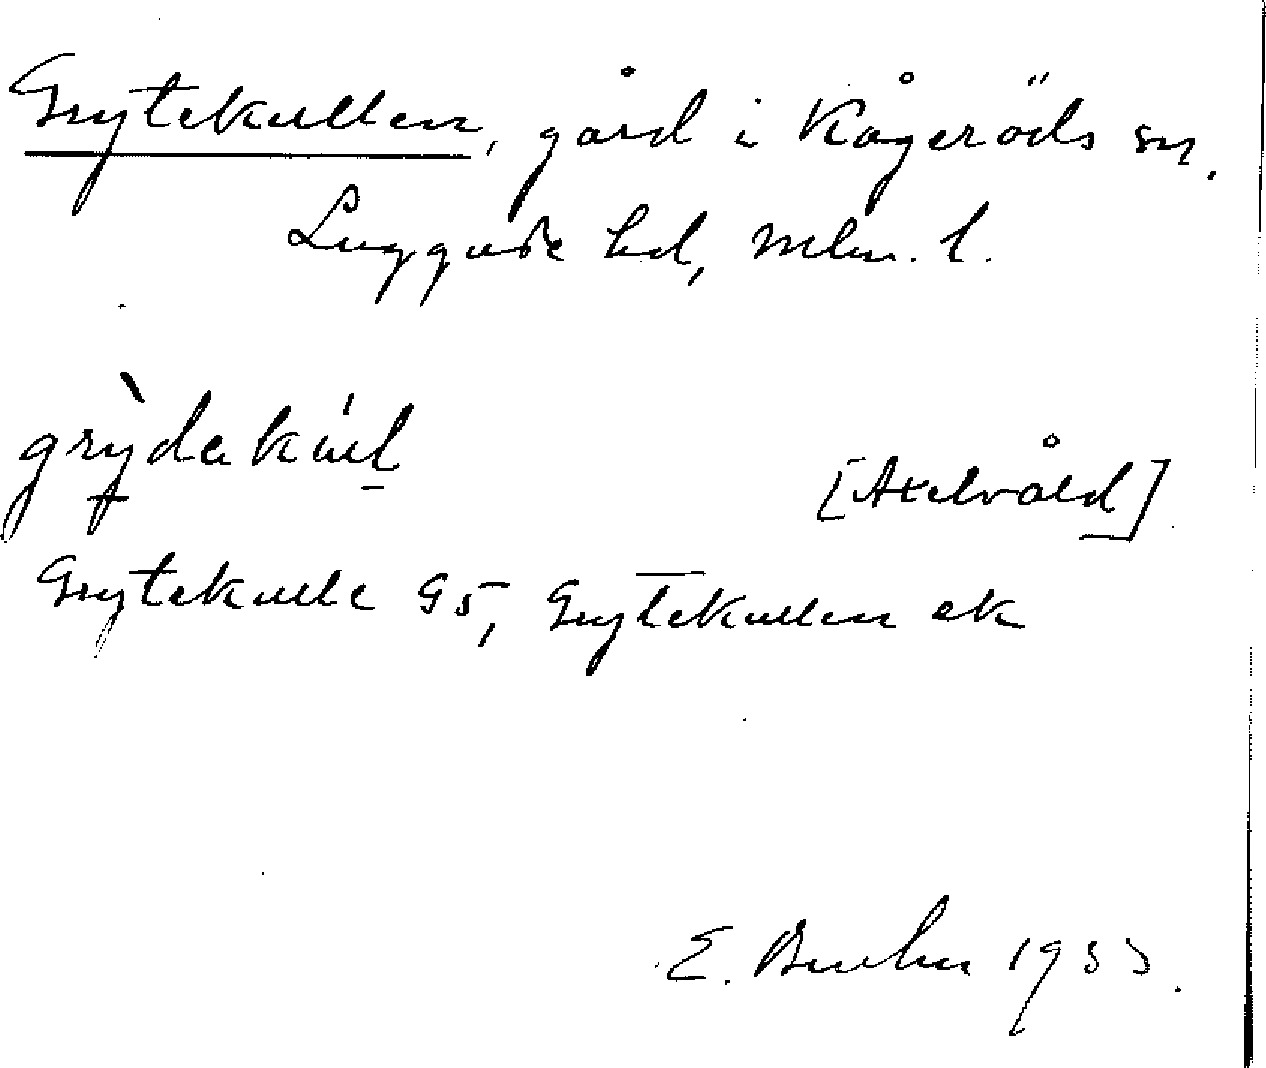 Grytekullen, gård i Kågeröds sn.
Luggude hd, Mlm. l.
grỳdakul
[Axelvåld]
Grytekulle G5, Grytekullen ek
E. 1933.